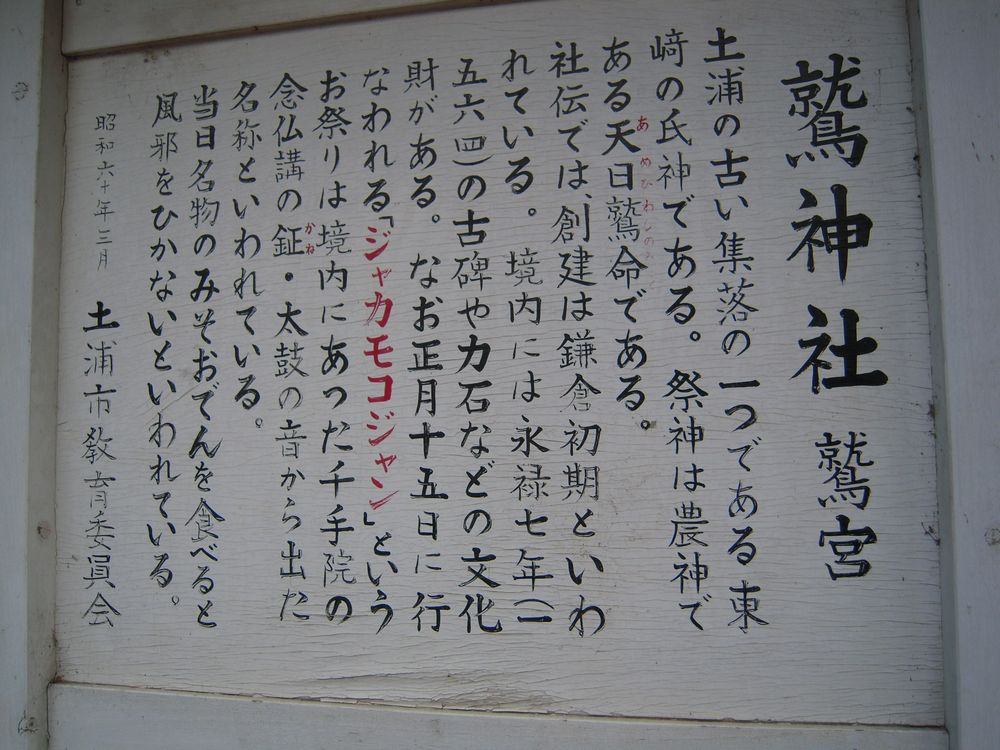 鷲神社 鷲宮
土浦の古い集落の一つである東
﨑の氏神である。祭神は農神で
ある天日鷲命である。
あめひわしの
社伝では、創建は鎌倉初期といわ
れている。境内には永禄七年(一
五六四)の古碑や力石などの文化
財がある。なお正月十五日に行
なわれる「ジャカモコジャン」という
お祭りは境内にあった千手院の
念仏講の鉦・太鼓の音から出た
かね
名称といわれている。
当日名物のみそおでんを食べると
風邪をひかないといわれている。
昭和六十年三月
土浦市教育委員会